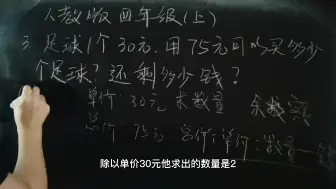 人教版四年级(上)
3. 足球1个30元.用75元可以买多少
个足球?还剩多少钱?
单价 30元 求数量
总价 75元 总价÷单价=数量……余数
除以单价30元他求出的数量是2